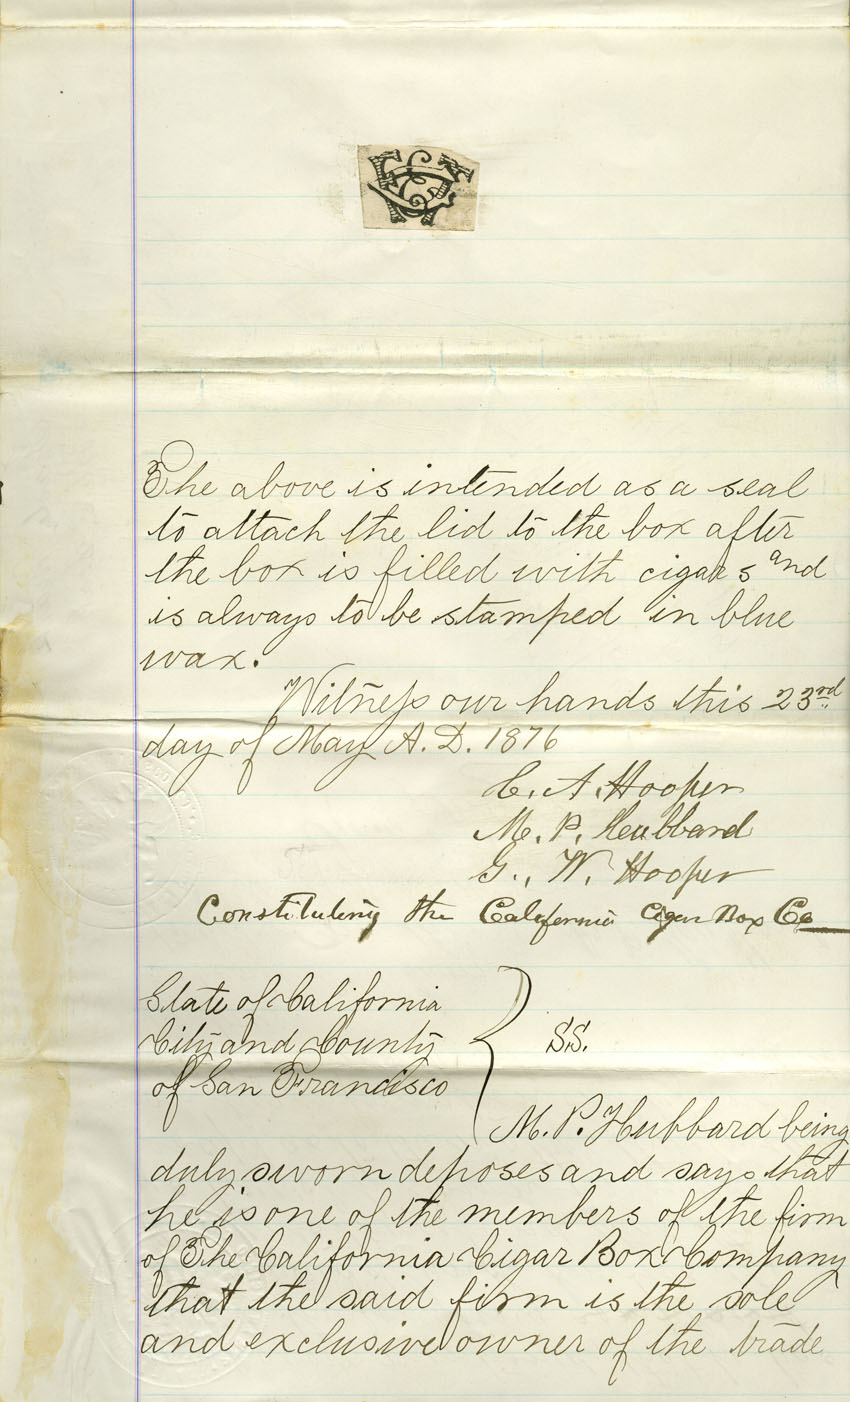 The above is intended as a seal
to attach the lid to the box after
the box is filled with cigars and
is always to be stamped in blue
wax.
Witness our hands this 23rd
day of May A.D. 1876
C. A. Hooper
M. P. Hubbard
G. W. Hooper
Constituting the California Cigar Box Co
State of California
City and County
of San Francisco
S.S.
M. P. Hubbard being
duly sworn deposes and says that
he is one of the members of the firm
of The California Cigar Box Company
that the said firm is the sole
and exclusive owner of the trade